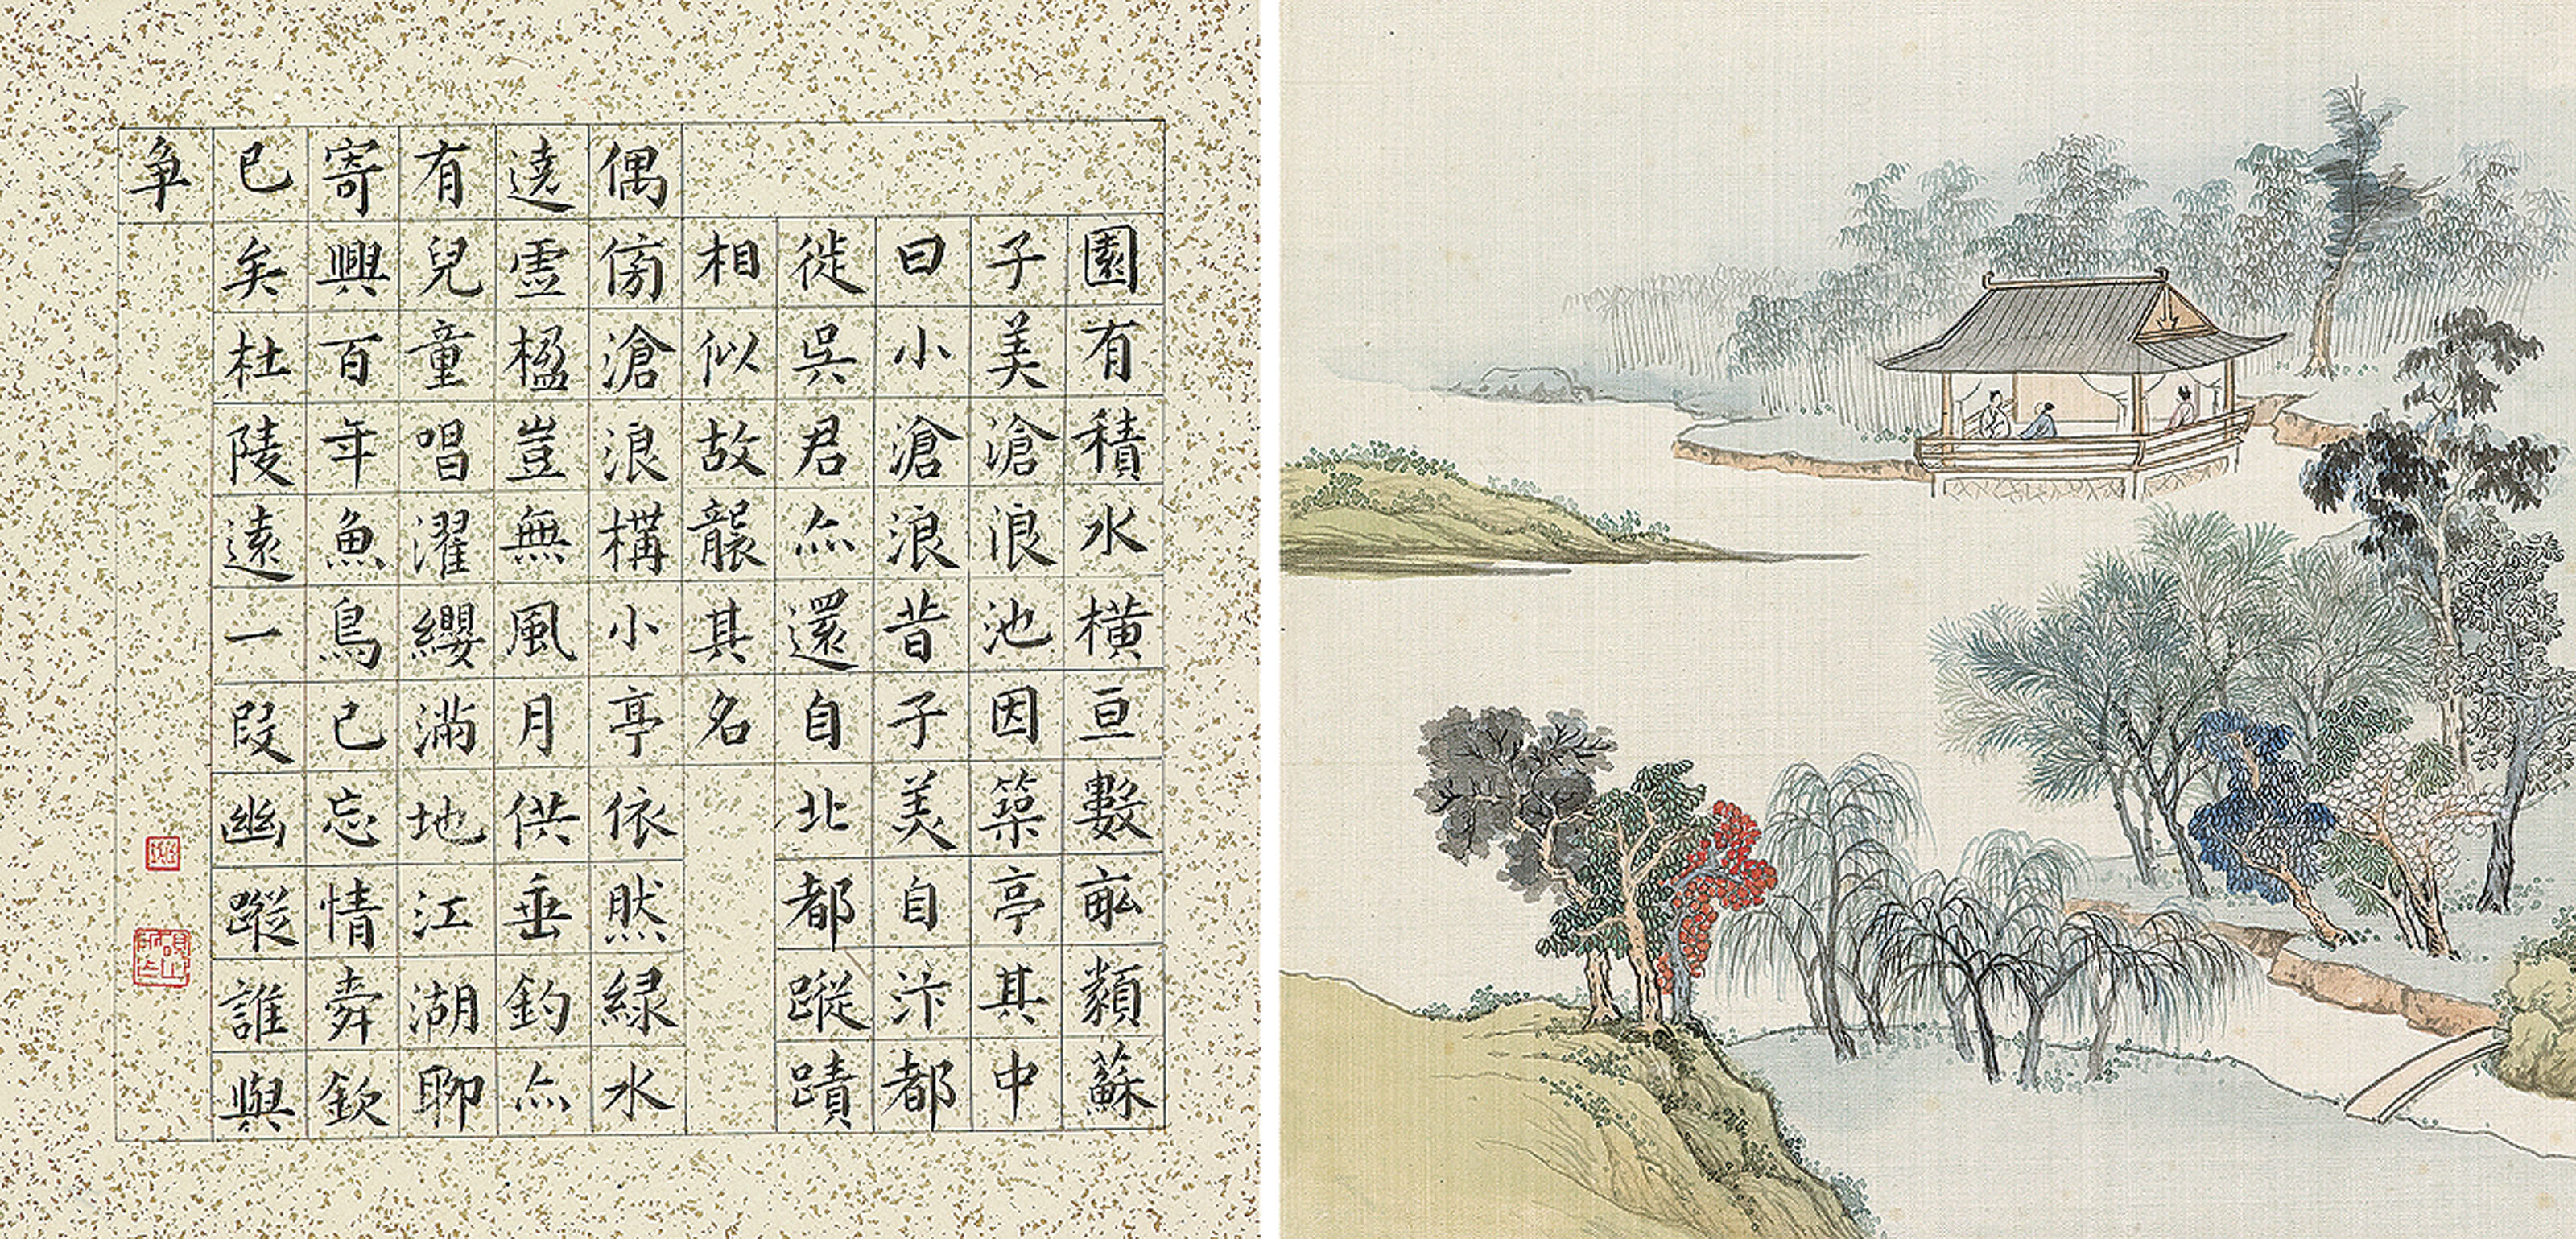 園有積水横亘數畝類蘇
子美滄浪池因築亭其中
曰小滄浪昔子美自汴都
徙吳君亦還自北都蹤蹟
相似故襲其名
偶傍滄浪構小亭依然緑水
遶虛楹豈無風月供垂釣亦
有兒童唱濯纓滿地江湖聊
寄興百年魚鳥已忘情舜欽
已矣杜陵遠一段幽蹤誰與
争